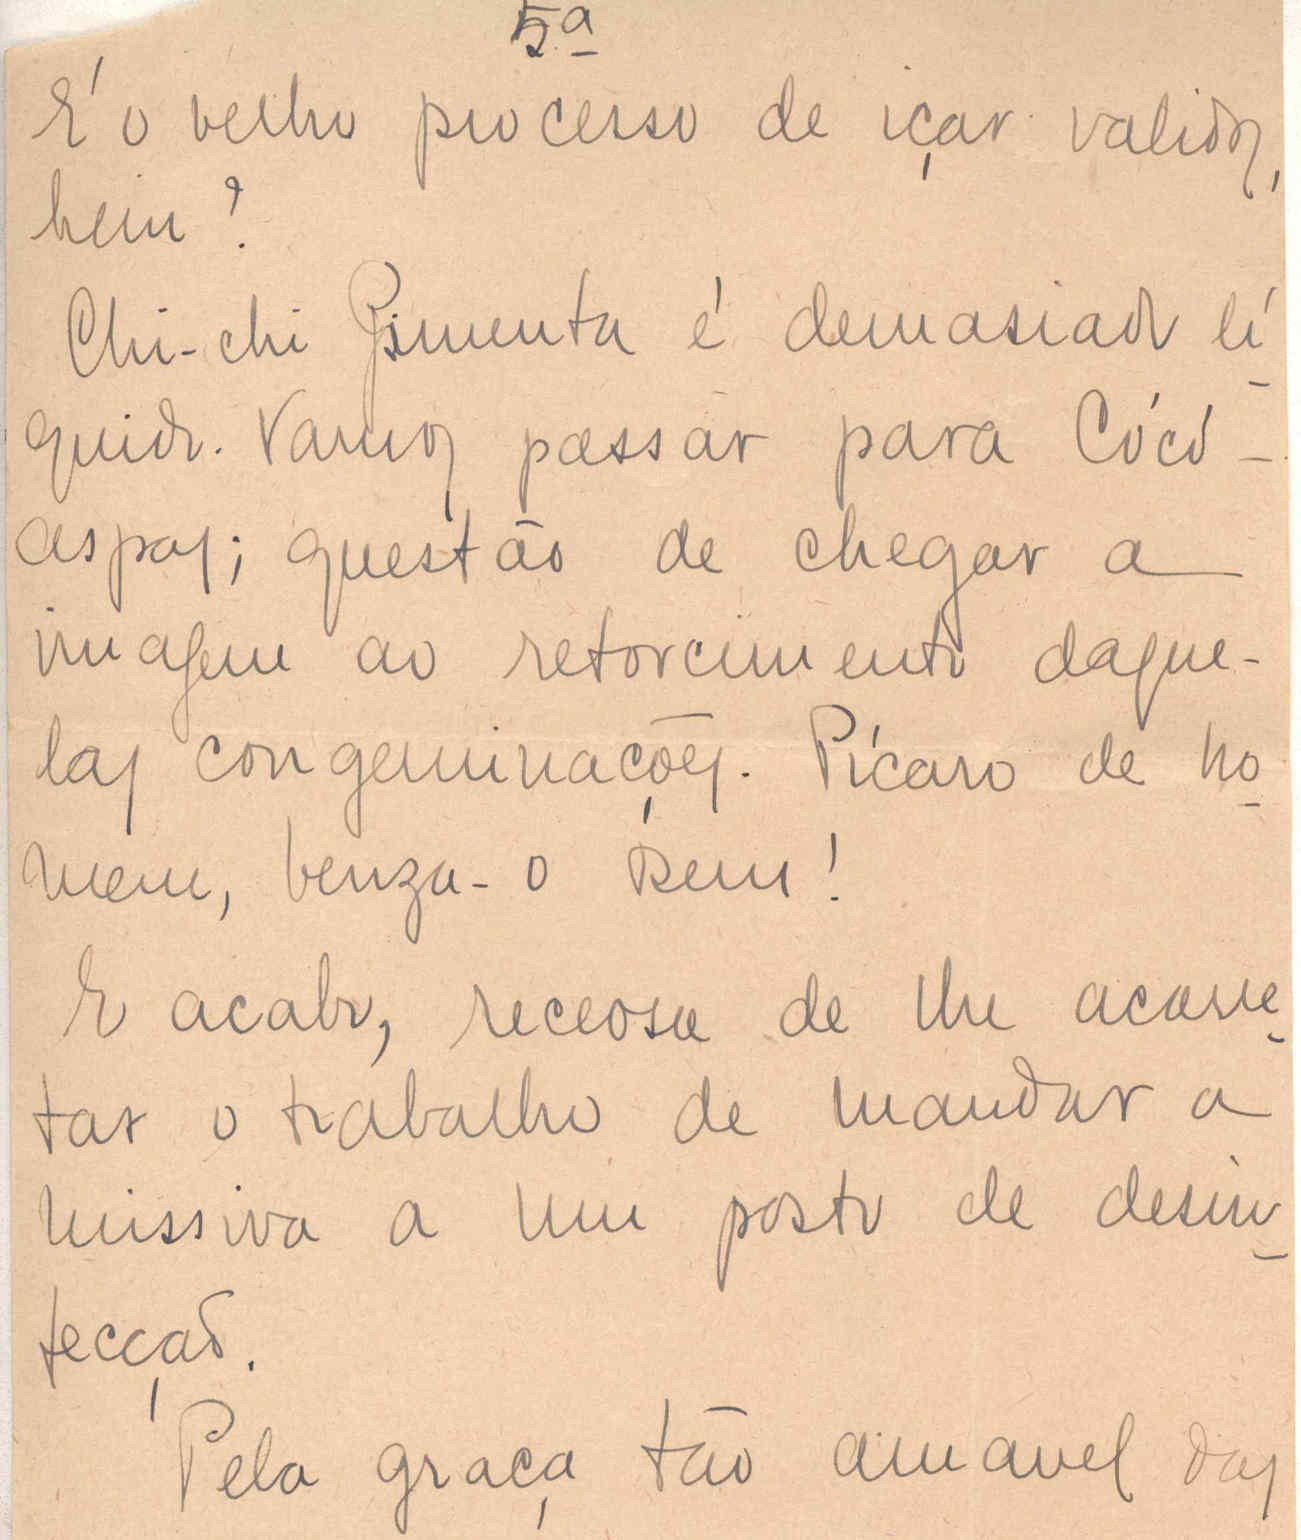 5ª
É o velho processo de içar validos,
hein?
Chi-chi Pimenta é demasiado lí-
quido. Vamos passar para Cócó-
aspas; questão de chegar a
imagem ao retorcimento daque-
las congeminações. Pícaro de ho-
mem, benza-o Deus!
E acabo, receosa de lhe acarre-
tar o trabalho de mandar a
missiva a um posto de desin-
fecção.
Pela graça tão amavel das